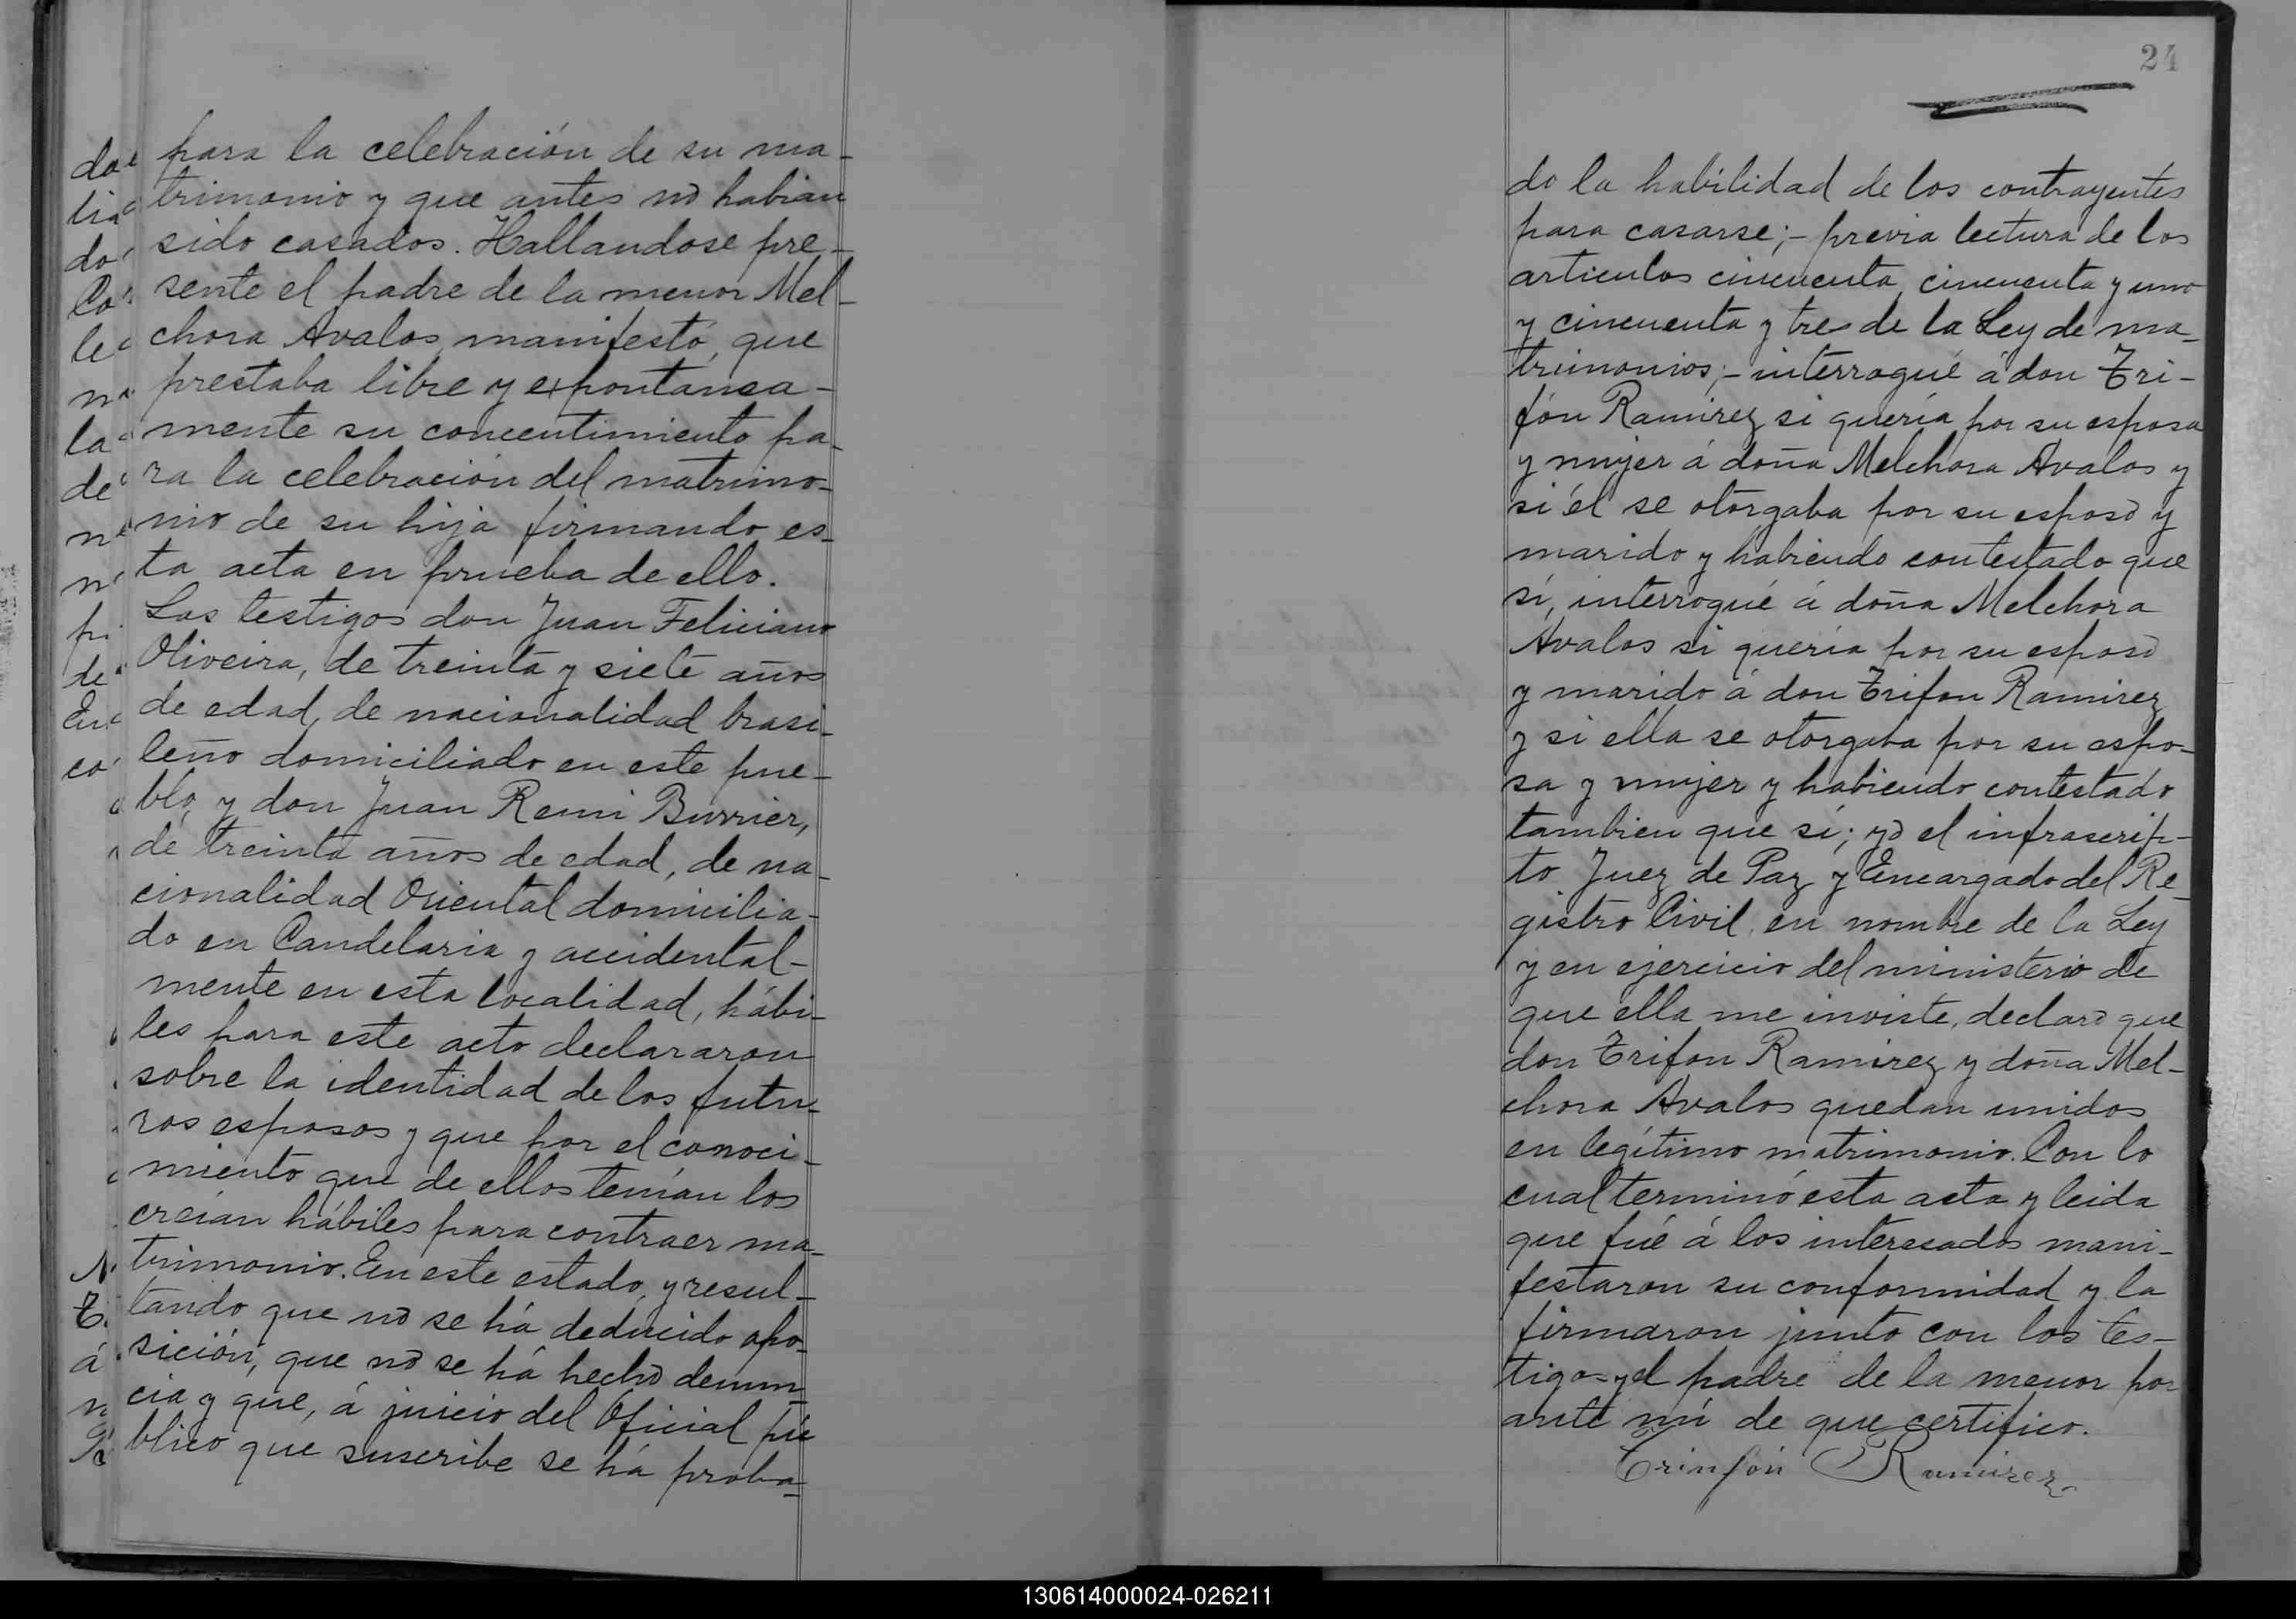 para la celebración de su ma-
trimonio y que antes nó habian
sido casados. Hallandose pre-
sente el padre de la menor Mel-
chora Avalos, manifestó, que
prestaba libre y expontanea-
mente su concentimiento pa-
ra la celebración del matrimo-
nio de su hija firmando es-
ta acta en prueba de ello.
Los testigos don Juan Feliciano
Oliveira, de treinta y siete años
de edad, de nacionalidad brasi-
leño domiciliado en este pue-
blo, y don Juan Remi Burrier,
de treinta años de edad, de na-
cionalidad Oriental domicilia-
do en Candelaria y accidental-
mente en esta localidad, hábi-
les para este acto declararon
sobre la identidad de los futu-
ros esposos y que por el conoci-
miento que de ellos tenían los
creían hábiles para contraer ma-
trimonio. En este estado, y resul-
tando que nó se há deducido opo-
sición, que nó se há hecho denun-
cia y que, á juicio del Oficial pú
blico que suscribe se há proba-
24
do la habilidad de los contrayentes
para casarse;- previa lectura de los
articulos cincuenta, cincuenta y uno
y cincuenta y tres de la Ley de ma-
trimonios;- interrogué á don Tri-
fón Ramírez si quería por su esposa
y mujer á doña Melchora Avalos y
si él se otorgaba por su esposo y
marido y habiendo contestado que
sí, interrogué á doña Melchora
Avalos si quería por su esposo
y marido á don Trifon Ramirez
y si ella se otorgaba por su espo-
sa y mujer y habiendo contestado
tambien que sí; yó el infrascrip-
to Juez de Paz y Encargado del Re-
gistro Civil, en nombre de la Ley
y en ejercicio del ministerio de
que ella me inviste, declaro que
don Trifon Ramírez y doña Mel-
chora Avalos quedan unidos
en legítimo matrimonio. Con lo
cual terminó esta acta y leida
que fué á los interesados mani-
festaron su conformidad y la
firmaron junto con los tes-
tigos y el padre de la menor por
ante mí de que certifico.
Trinfón Ramirez
130614000024-026211